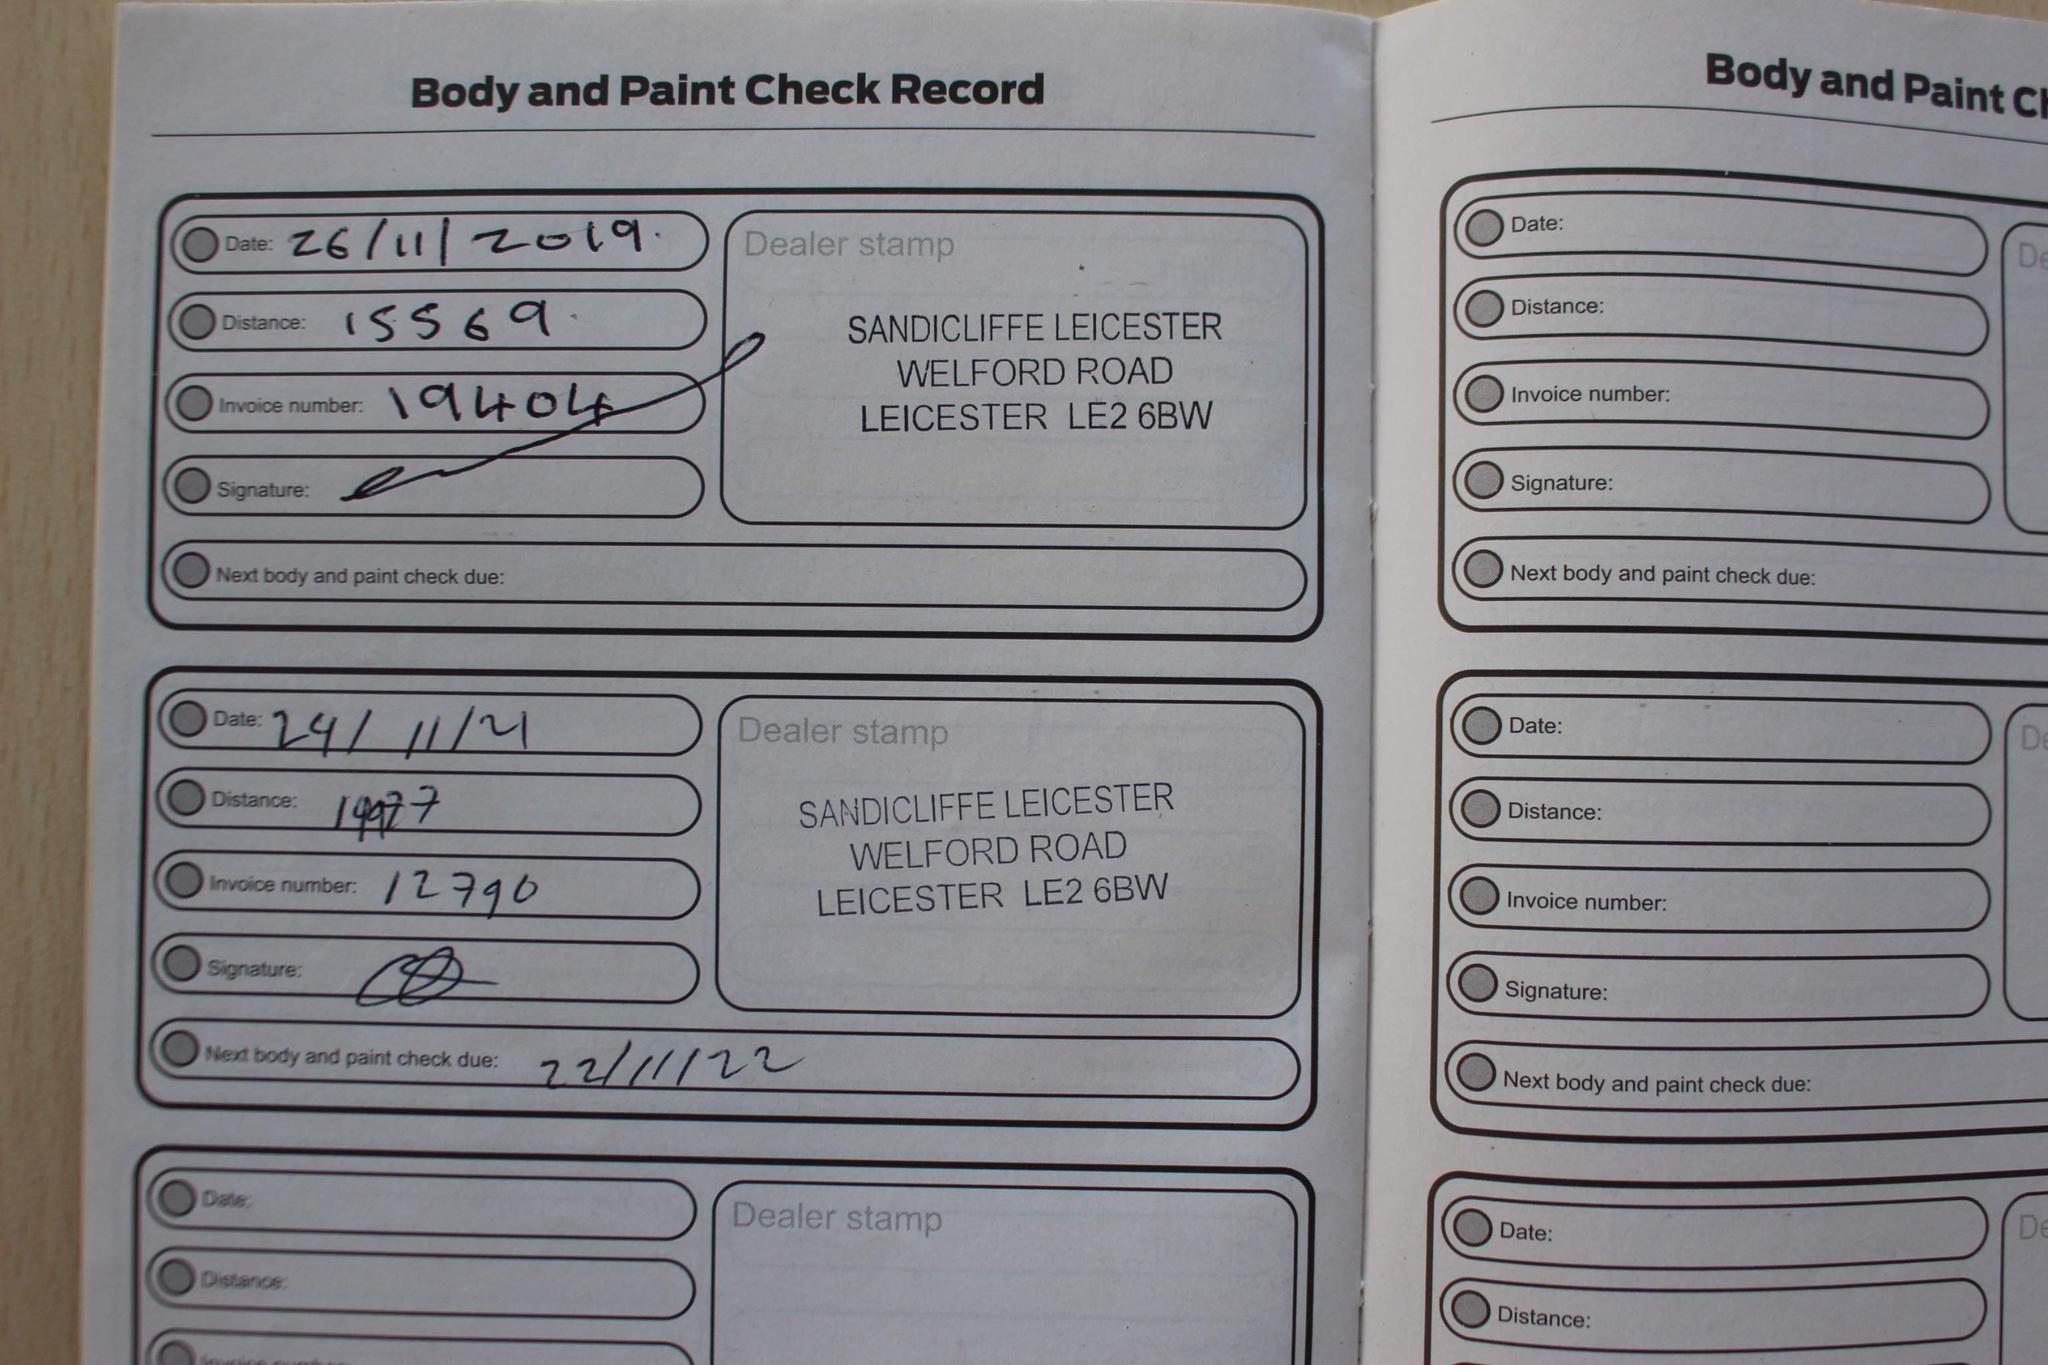 Body and Paint Check Record
Date: 26/11/2019.
Distance: 15569
Invoice number: 19404
Signature:
Dealer stamp
SANDICLIFFE LEICESTER
WELFORD ROAD
LEICESTER LE2 6BW
Next body and paint check due:
Date: 24/11/21
Distance:
Invoice number: 12790
Signature:
Dealer stamp
SANDICLIFFE LEICESTER
WELFORD ROAD
LEICESTER LE2 6BW
Next body and paint check due: 22/11/22
Date:
Distance:
Dealer stamp
Body and Paint Ch
Date:
Distance:
Invoice number:
Signature:
De
Next body and paint check due:
Date:
Distance:
Invoice number:
Signature:
De
Next body and paint check due:
Date:
Distance:
De